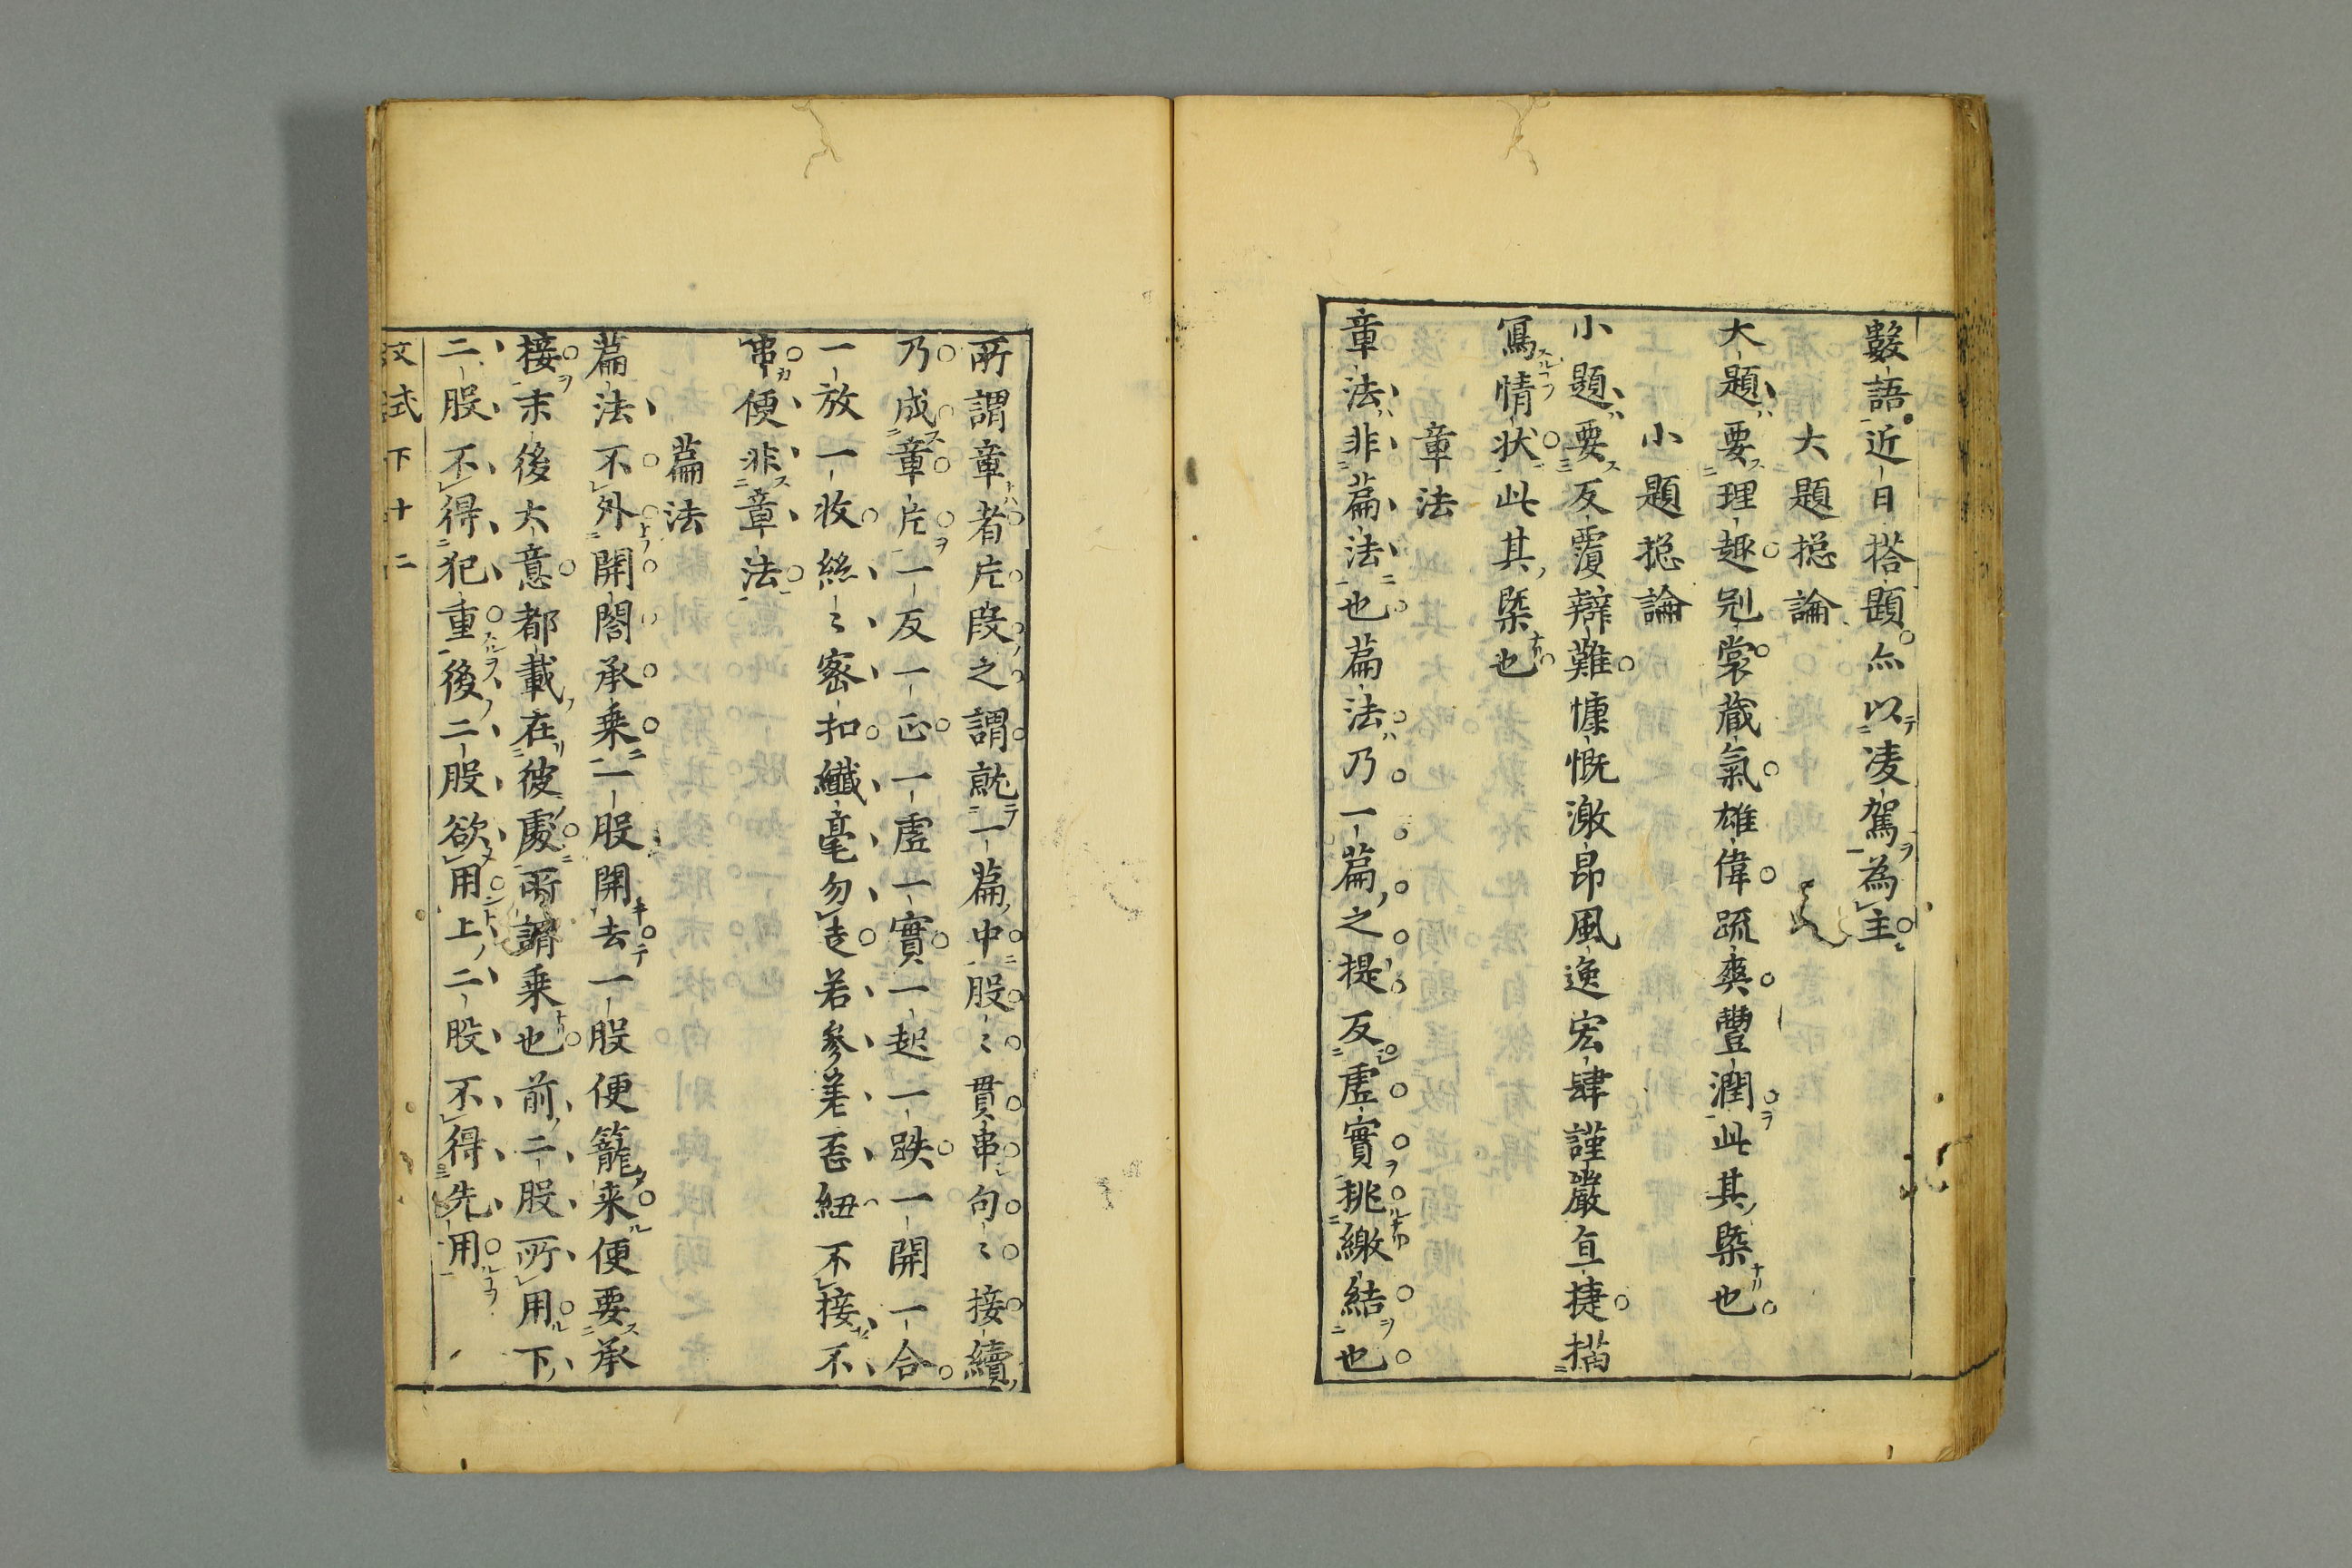 數語近日搭題亦以凌駕為主
大題捴論
大題要理趣冠裳蔵氣雄偉疏爽豐潤此其槩也
小題捴論
小題要反覆辯難慷慨激昂風逸宏肆謹嚴直捷描
寫情状此其槩也
章法
章法非篇法也篇法乃一篇之提反虛實挑繳結也
所謂章者片段之謂就一篇中股〻貫串句〻接續
乃成章片一反一正一虛一實一起一跌一開一合
一放一收絲〻密扣纖毫勿走若參差丟紐不接不
串便非章法
篇法
篇法不外開闔承乗二股開去一股便籠来便要承
接末後大意都載在彼處所謂乗也前二股所用下
二股不得犯重後二股欲用上二股不得先用
文式 下 十二